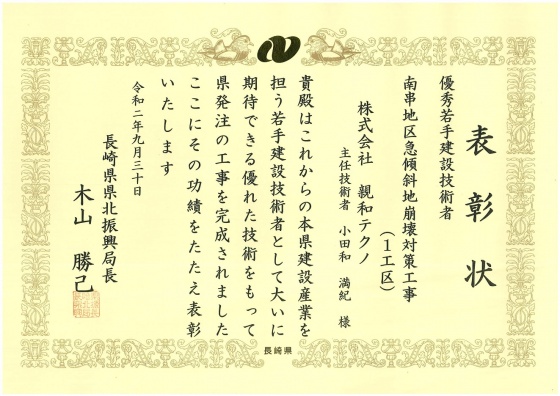 表彰状
優秀若手建設技術者
南串地区急傾斜地崩壊対策工事
(1工区)
株式会社 親和テクノ
主任技術者 小田和 満紀 様
貴殿はこれからの本県建設産業を
担う若手建設技術者として大いに
期待できる優れた技術をもって
県発注の工事を完成されました
ここにその功績をたたえ表彰
いたします
令和二年九月三十日
長崎県県北振興局長
木山 勝己
長崎県